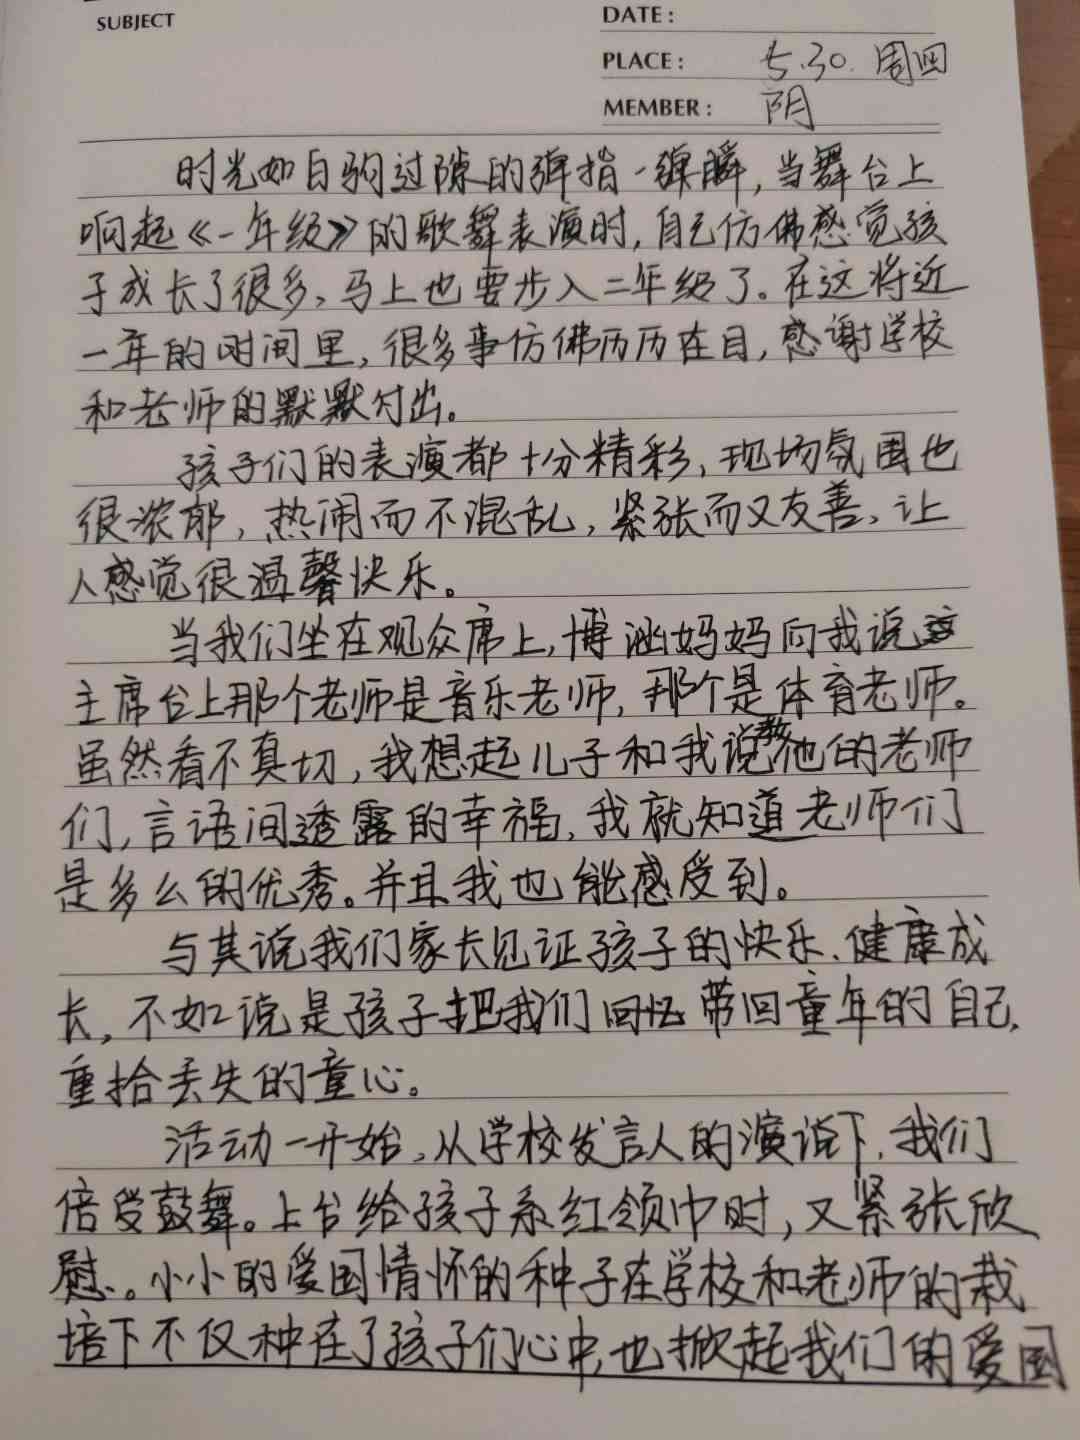 SUBJECT
DATE:
PLACE: 5.30. 周四
MEMBER: 阴
时光如白驹过隙的弹指一瞬,当舞台上
响起《一年级》的歌舞表演时,自己仿佛感觉孩
子成长了很多,马上也要步入二年级了。在这将近
一年的时间里,很多事仿佛历历在目,感谢学校
和老师的默默付出。
孩子们的表演都十分精彩,现场氛围也
很浓郁,热闹而不混乱,紧张而又友善,让
人感觉很温馨快乐。
当我们坐在观众席上,博涵妈妈向我说
主席台上那个老师是音乐老师,那个是体育老师。
虽然看不真切,我想起儿子和我说教他的老师
们,言语间透露的幸福,我就知道老师们
是多么的优秀。并且我也能感受到。
与其说我们家长见证孩子的快乐、健康成
长,不如说是孩子把我们回忆带回童年的自己,
重拾丢失的童心。
活动一开始,从学校发言人的演说下,我们
倍受鼓舞。上台给孩子系红领巾时,又紧张欣
慰。小小的爱国情怀的种子在学校和老师的栽
培下不仅种在了孩子们心中,也掀起我们的爱国